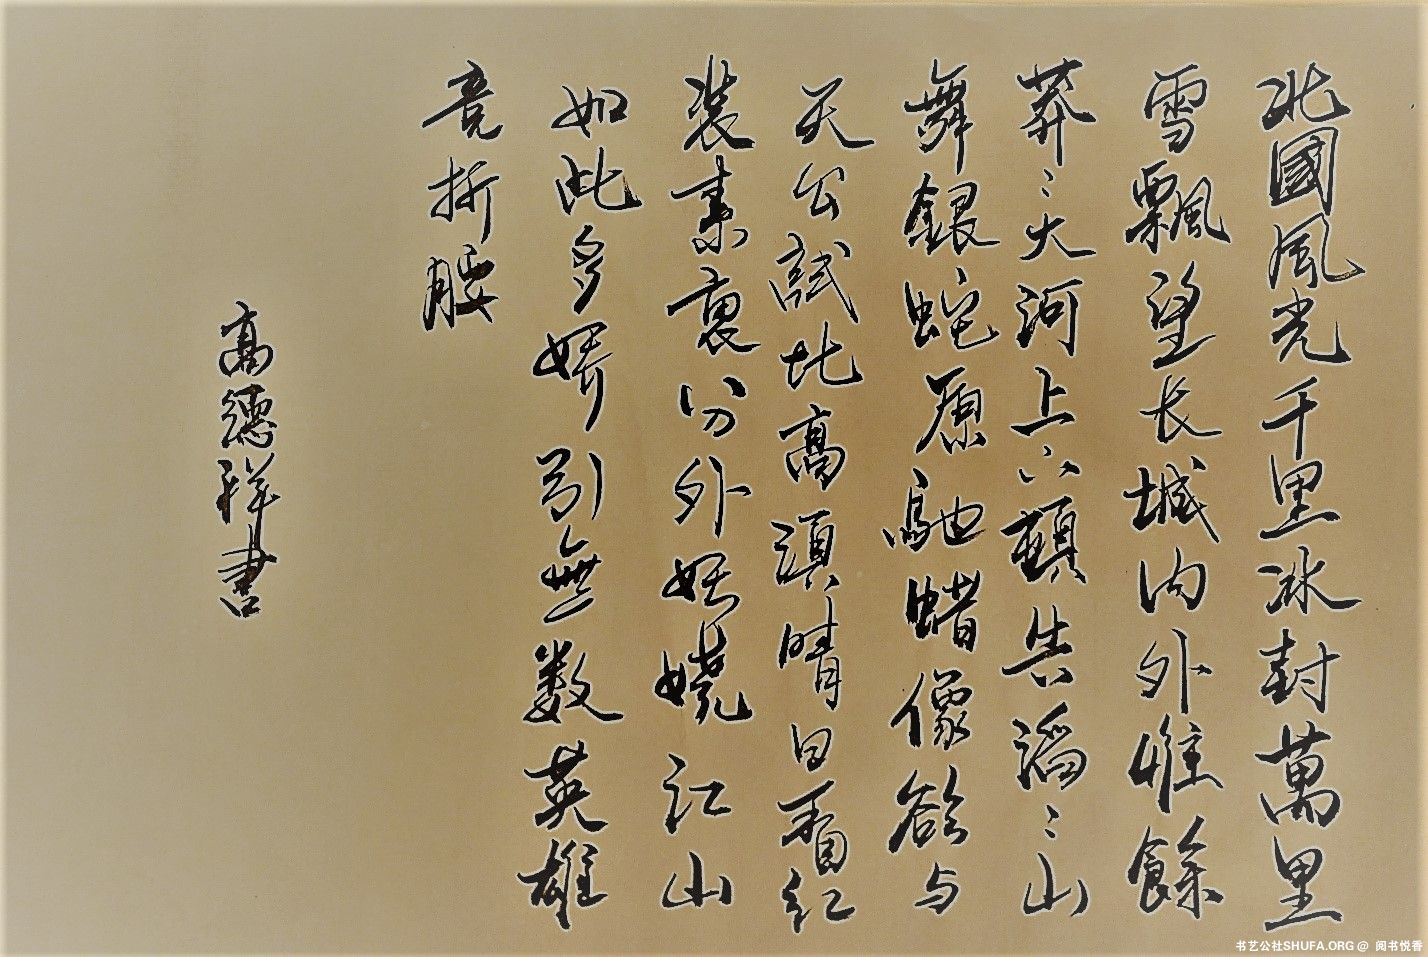 北國風光千里冰封萬里
雪飄望长城内外惟餘
莽〻大河上下頓失滔〻山
舞銀蛇原馳蜡像欲与
天公試比高須晴日看紅
装素裹分外妖嬈江山
如此多娇引無数英雄
竞折腰
高德祥書
书艺公社SHUFA.ORG @ 阅书悦香